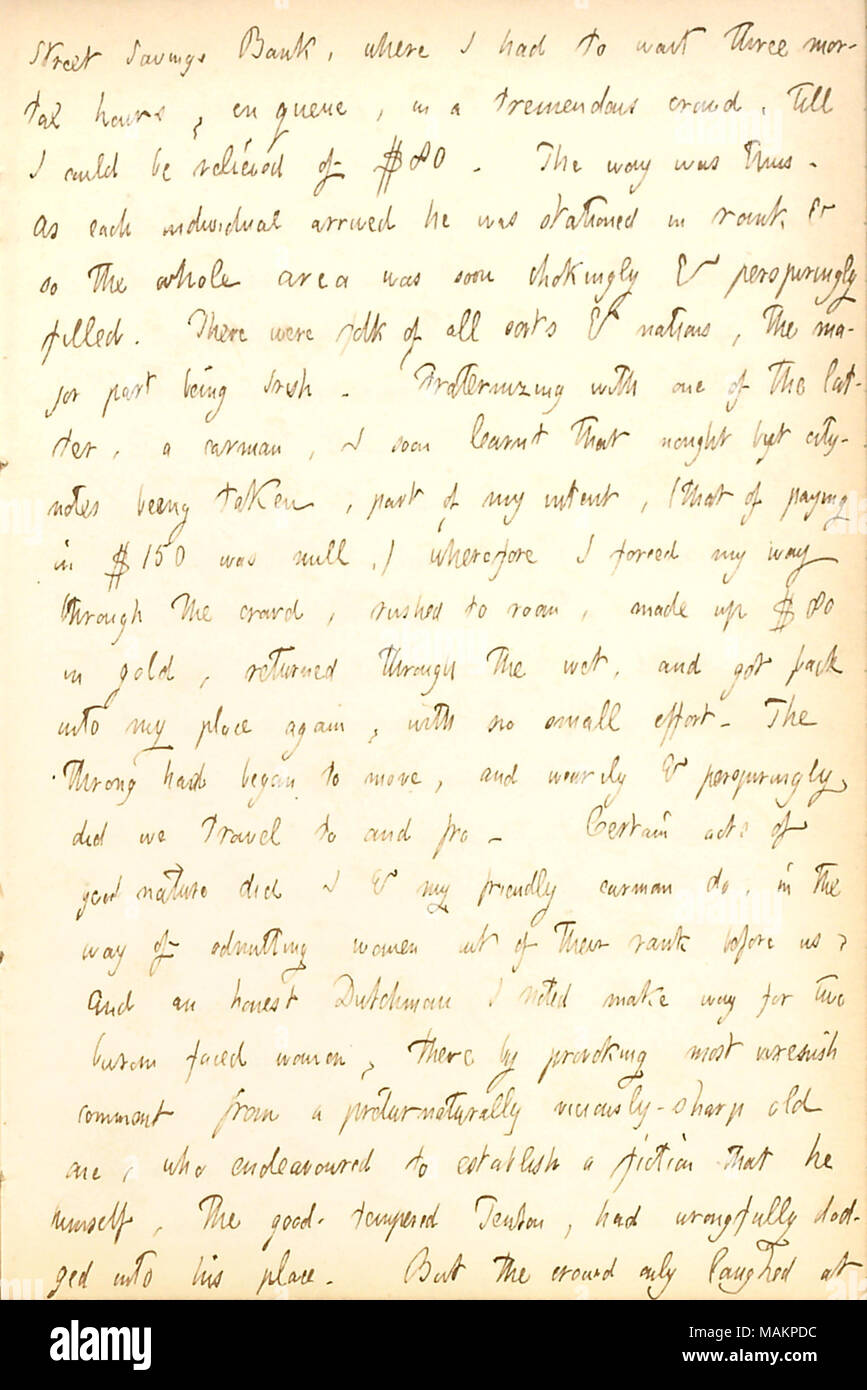 Street Savings Bank, where I had to wait three mor-
tal hours, en queue, in a tremendous crowd, till
I could be relieved of $80. The way was thus.
As each individual arrived he was stationed in rank &
so the whole area was soon chokingly & perspiringly
filled. There were folk of all sorts & nations, the ma-
jor part being Irish. Fraternizing with one of the lat-
ter, a carman, I soon learnt that nought but city-
notes being taken, part of my intent, (that of paying
in $150 was null,) wherefore I forced my way
through the crowd, rushed to room, made up $80
in gold, returned through the wet, and got back
into my place again, with no small effort. The
throng had began to move, and wearily & perspiringly
did we travel to and fro. Certain acts of
good nature did I & my friendly carman do, in the
way of admitting women out of their rank before us,
And an honest Dutchman I noted make way for two
buxom faced women, there by provoking most
comment from a preturnaturally viciously-sharp old
one, who endeavoured to establish a fiction that he
himself, the good-tempered Teuton, had wrongfully dod-
ged into his place. But the crowd only laughed at
alamy
Image ID: MAKPDC
www.alamy.com